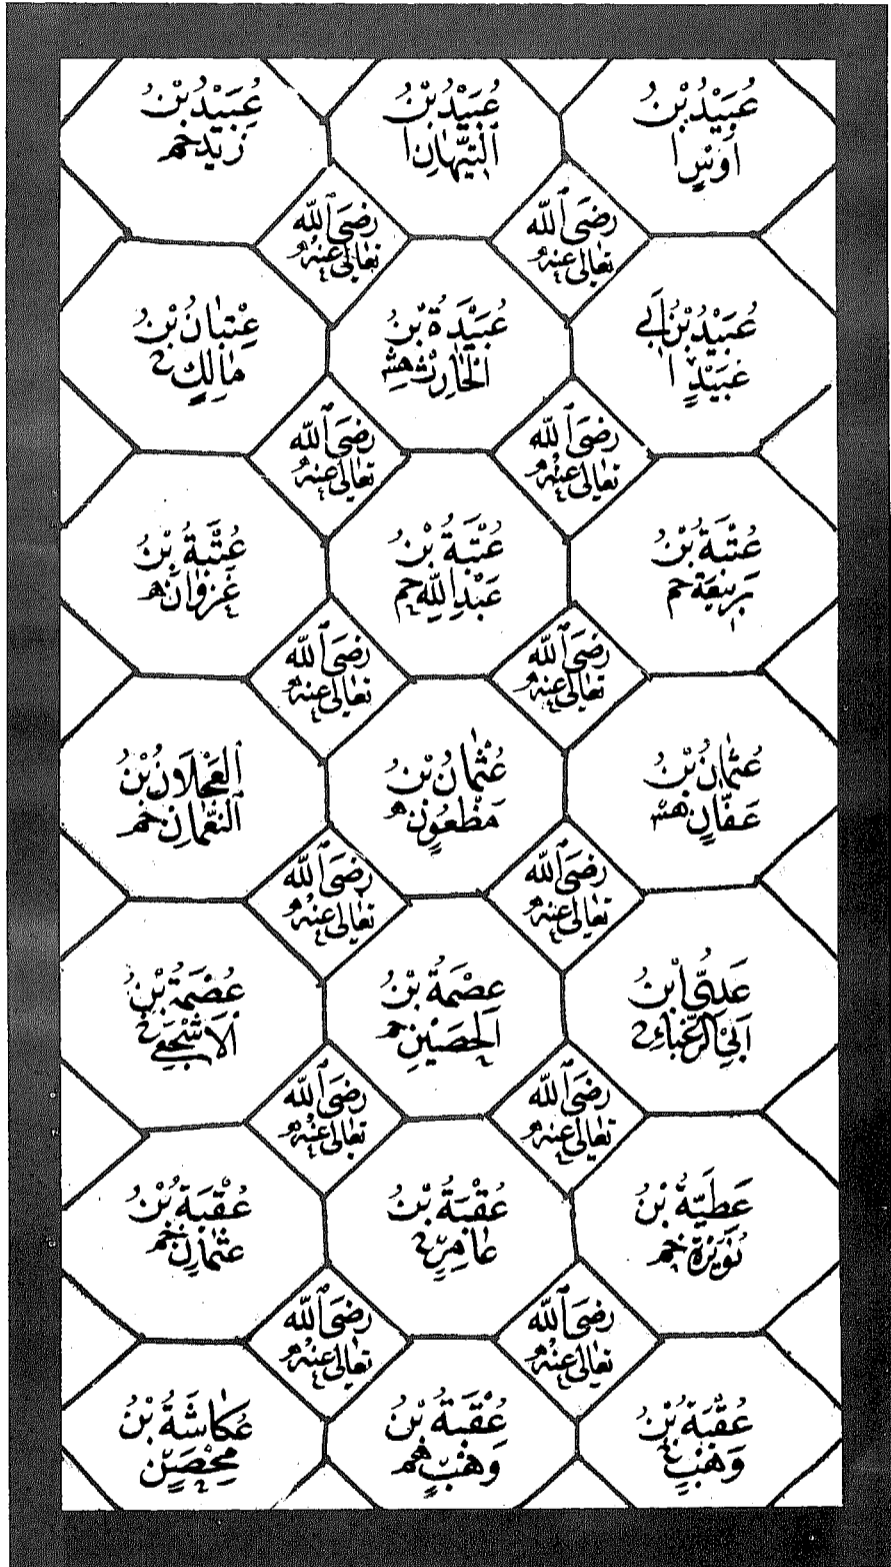 عُبَيْدُ بْنُ
اَوْسٍ ا
عُبَيْدُ بْنُ
التَّيِّهَانِ ا
عُبَيْدُ بْنُ
زَيْدٍ خم
رَضِيَ اللّٰه
تعالٰى عنهُ
رَضِيَ اللّٰه
تعالٰى عنهُ
عُبَيْدُ بْنُ اَبِي
عُبَيْدٍ ا
عُبَيْدَةُ بْنُ
الْحَارِثِ هش
عِتْبَانُ بْنُ
مَالِكٍ
رَضِيَ اللّٰه
تعالٰى عنهُ
رَضِيَ اللّٰه
تعالٰى عنهُ
عُتْبَةُ بْنُ
رَبِيْعَةَ خم
عُتْبَةُ بْنُ
عَبْدِ اللّٰهِ خم
عُتْبَةُ بْنُ
غَزْوَانَ ه
رَضِيَ اللّٰه
تعالٰى عنهُ
رَضِيَ اللّٰه
تعالٰى عنهُ
عُثْمَانُ بْنُ
عَفَّانٍ هش
عُثْمَانُ بْنُ
مَظْعُوْنٍ ه
الْعَجْلَانُ بْنُ
النُّعْمَانِ خم
رَضِيَ اللّٰه
تعالٰى عنهُ
رَضِيَ اللّٰه
تعالٰى عنهُ
عَدِيُّ ابْنُ
اَبِي الزَّغْبَاءِ
عِصْمَةُ بْنُ
الْحُصَيْنِ خم
عُصْمَةُ بْنُ
الْاَشْجَعِي
رَضِيَ اللّٰه
تعالٰى عنهُ
رَضِيَ اللّٰه
تعالٰى عنهُ
عَطِيَّةُ بْنُ
نُوَيْرَةَ خم
عُقْبَةُ بْنُ
عَامِرٍ
عُقْبَةُ بْنُ
عُثْمَانَ خم
رَضِيَ اللّٰه
تعالٰى عنهُ
رَضِيَ اللّٰه
تعالٰى عنهُ
عُقْبَةُ بْنُ
وَهْبٍ
عُقْبَةُ بْنُ
وَهْبٍ
عُكَاشَةُ بْنُ
مِحْصَنٍ